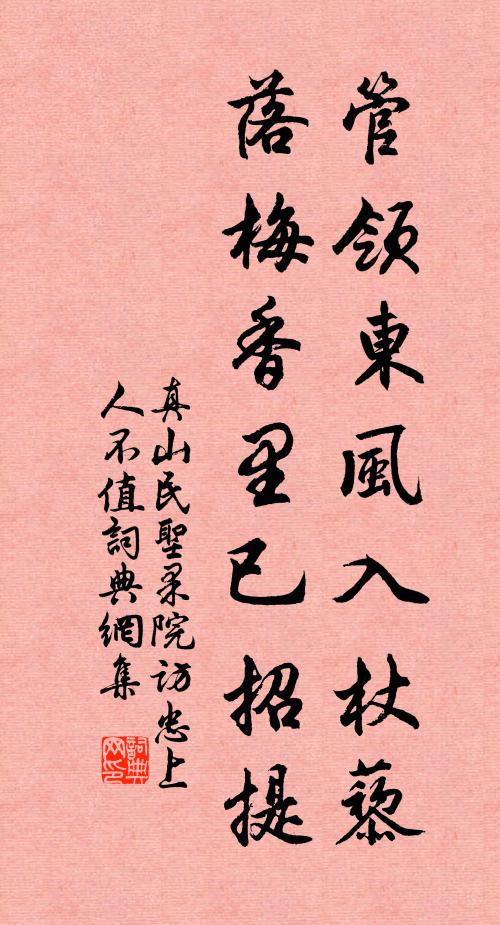 管領東風入杖藜
落梅香里已招提
真山民聖果院访忠上
人不值詞典網集
詞典网印